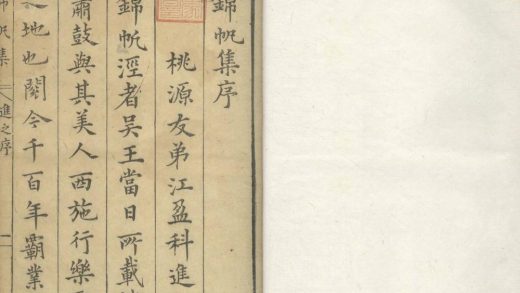 錦帆集序
桃源友弟江盈科進
錦帆涇者吳王當日所載
簫鼓與其美人西施行樂
地也閱今千百年霸業
帆集 進之序 一